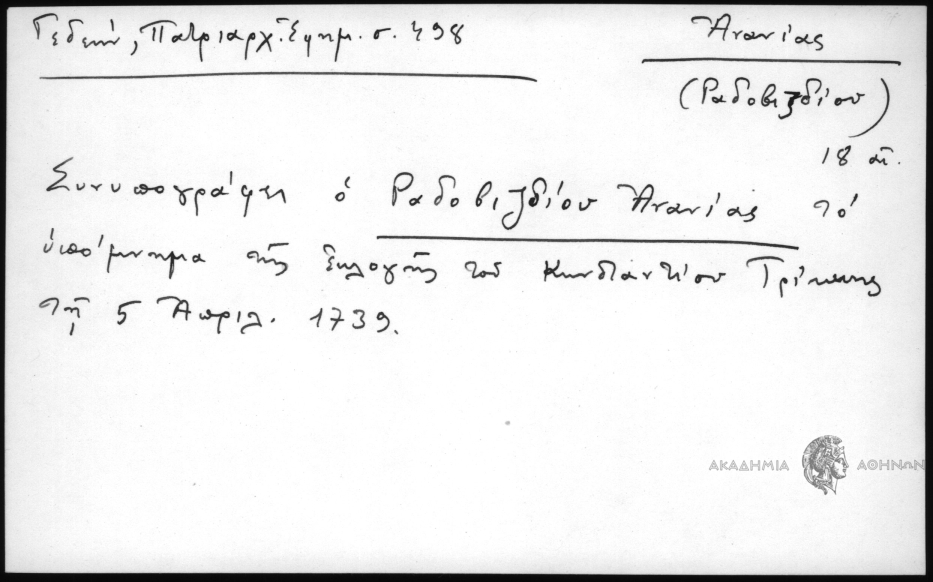 Γεδεών, Πατριαρχ. Ἐφημ. σ. 498
Ἀνανίας
(Ραδοβιζδίου)
18 αἰ.
Συνυπογράφει ὁ Ραδοβιζδίου Ἀνανίας τό
ὑπόμνημα τῆς ἐκλογῆς τοῦ Τρίκκης
τῇ 5 Ἀπριλ. 1739.
ΑΚΑΔΗΜΙΑ ΑΘΗΝΩΝ